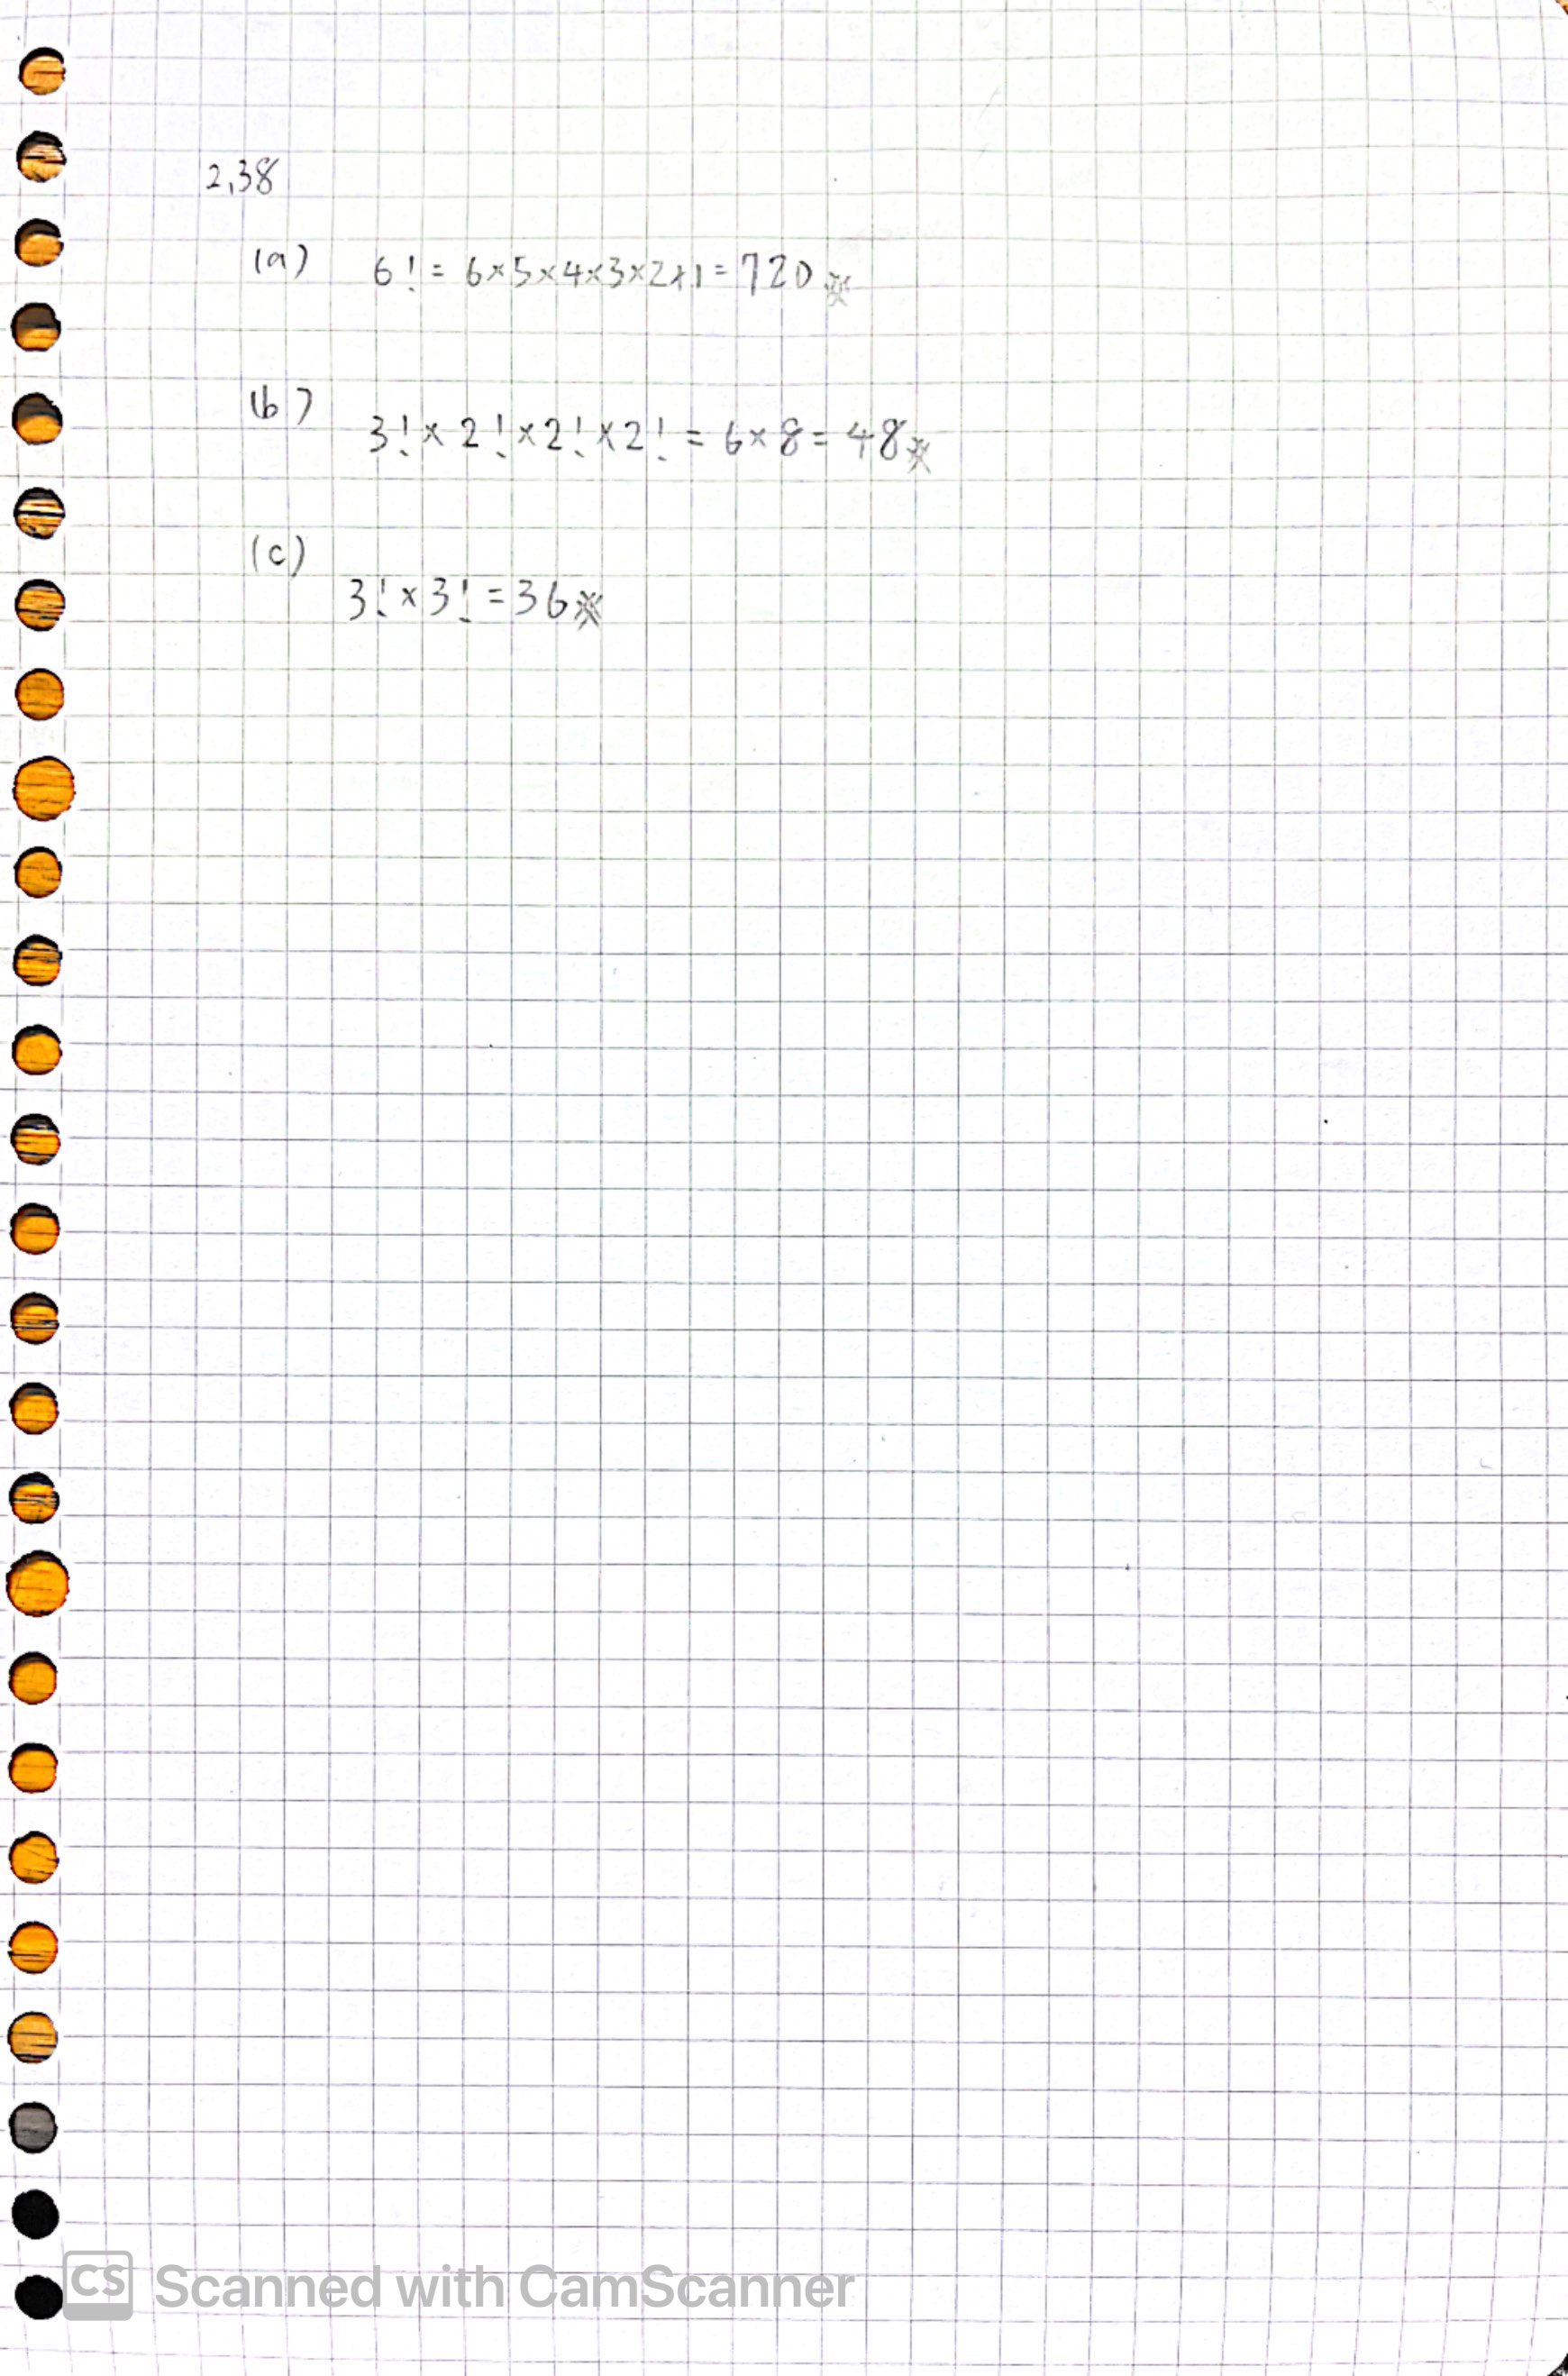 2,38
(a) 6! = 6×5×4×3×2×1 = 720※
(b)
3! × 2! × 2! × 2! = 6×8 = 48※
(c)
3! × 3! = 36※
CS Scanned with CamScanner